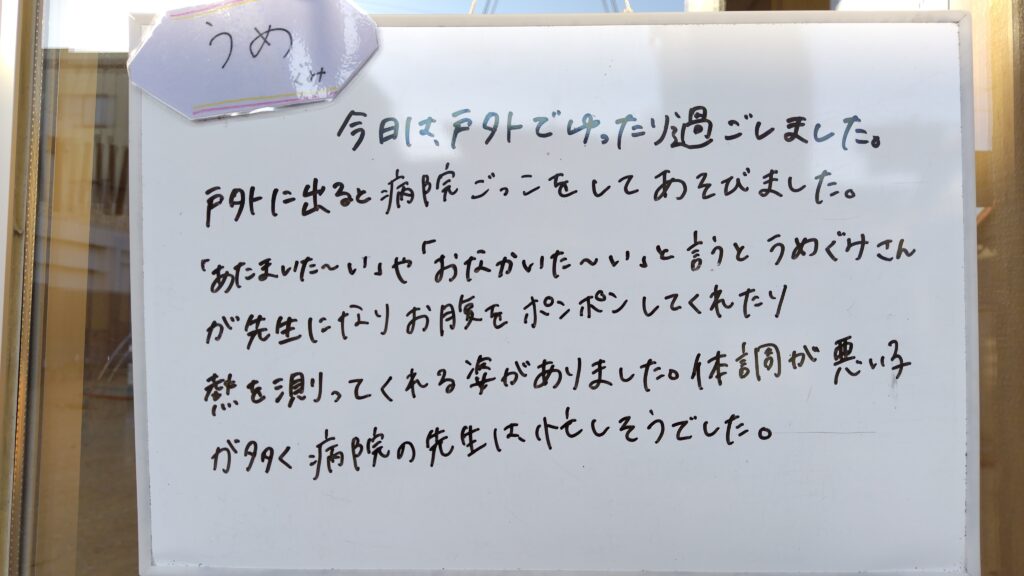 うめ
くみ
今日は、戸外でゆったり過ごしました。
戸外に出ると病院ごっこをしてあそびました。
「あたまいた～い」や「おなかいた～い」と言うと うめぐみさん
が先生になりお腹をポンポンしてくれたり
熱を測ってくれる姿がありました。体調が悪い子
が多く病院の先生は忙しそうでした。